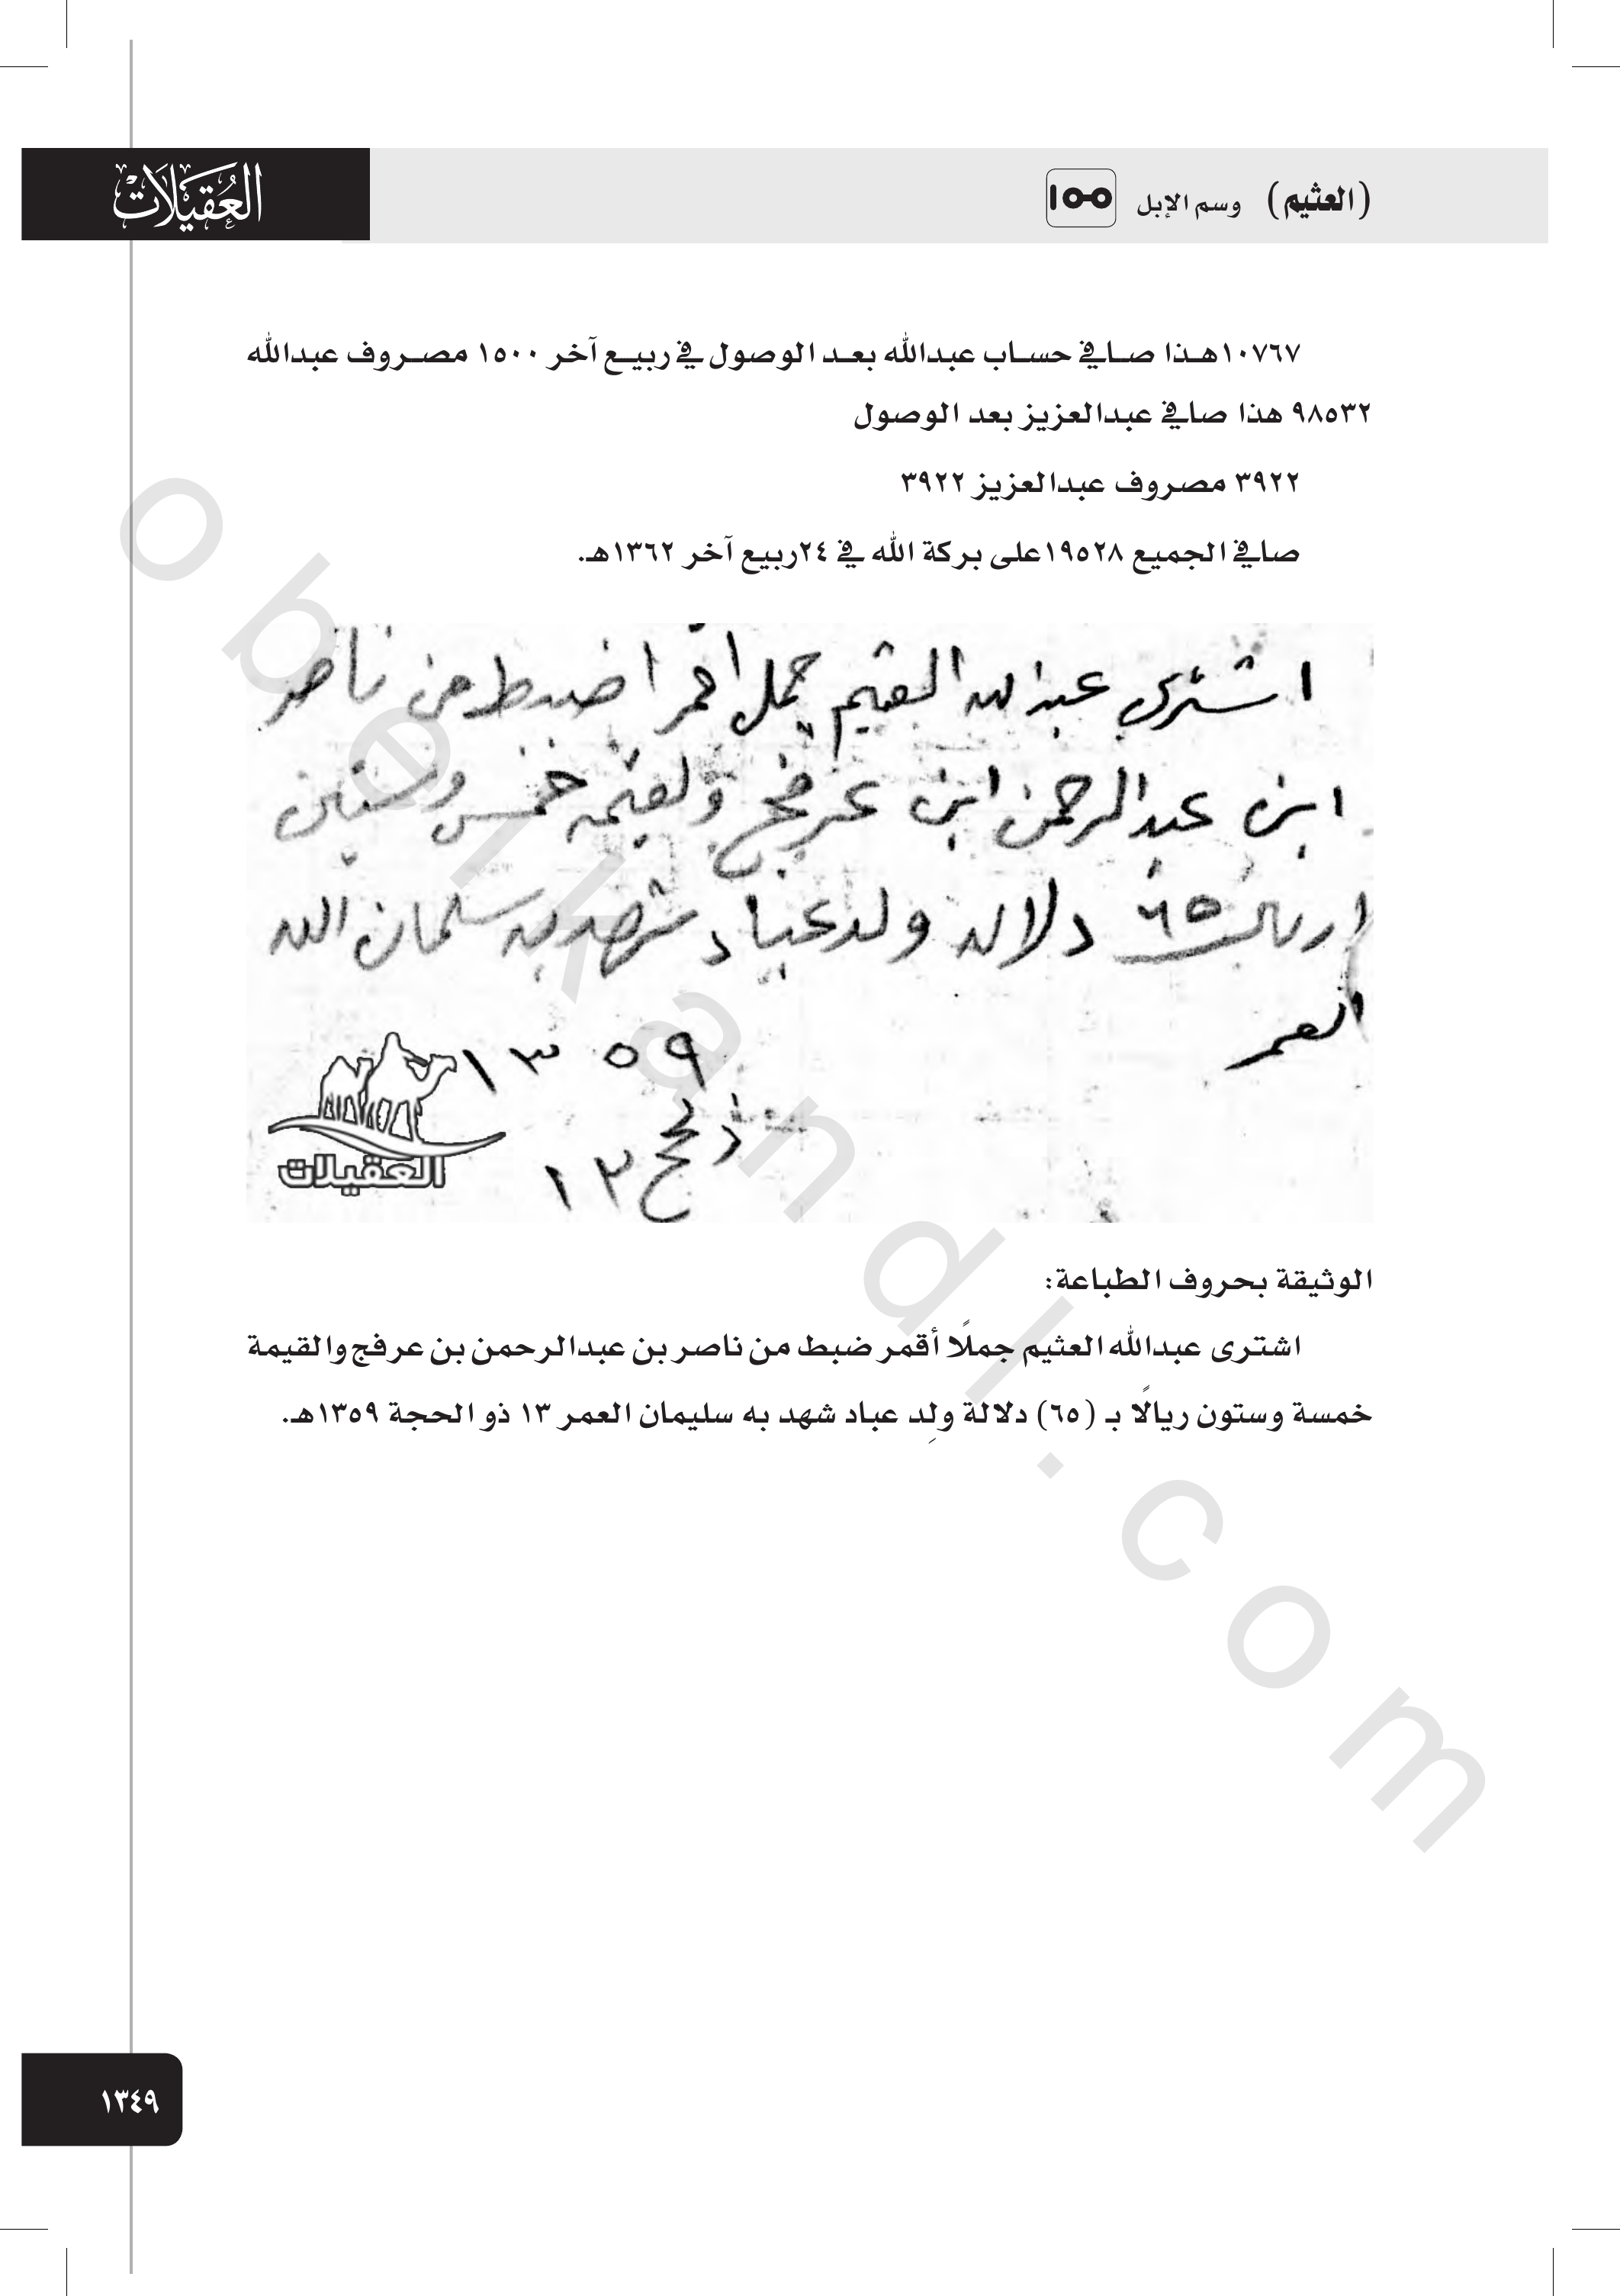 (العثيم) وسم الإبل
العُقَيْلَات
١٠٧٦٧هـذا صـافي حسـاب عبدالله بعـد الوصول في ربيـع آخر ١٥٠٠ مصـروف عبدالله
٩٨٥٣٢ هذا صافي عبدالعزيز بعد الوصول
٣٩٢٢ مصروف عبدالعزيز ٣٩٢٢
صافي الجميع ١٩٥٢٨على بركة الله في ٢٤ربيع آخر ١٣٦٢هـ.
اشترى عبدلله العثيم جمل اقمر اضبط من ناصر
ابن عبدالرحمن ابن عرفج ولقيمه خمس وستين
اريال ٦٥ دلاله ولد عباد شهد به سلمان الله
العمر
١٣٥٩
ذلحج ١٣
العقيلات
الوثيقة بحروف الطباعة:
اشترى عبدالله العثيم جملًا أقمر ضبط من ناصر بن عبدالرحمن بن عرفج والقيمة
خمسة وستون ريالًا بـ (٦٥) دلالة ولِد عباد شهد به سليمان العمر ١٣ ذو الحجة ١٣٥٩هـ.
١٣٤٩
obeikandl.com